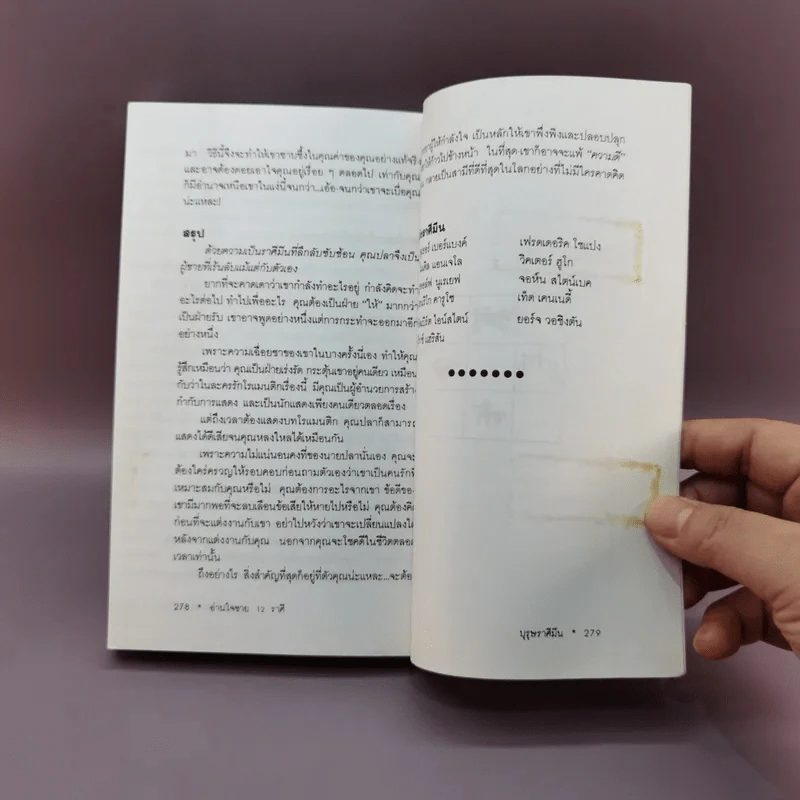 มา วิธีนี้จึงจะทำให้เขาซาบซึ้งในคุณค่าของคุณอย่างแท้จริง
และอาจต้องคอยเอาใจคุณอยู่เรื่อย ๆ ตลอดไป เท่ากับคุณ
ก็มีอำนาจเหนือเขาในแง่นี้จนกว่า...เอ้อ-จนกว่าเขาจะเบื่อคุณ
น่ะแหละ!
สรุป
ด้วยความเป็นราศีมีนที่ลึกลับซับซ้อน คุณปลาจึงเป็น
ผู้ชายที่เร้นลับแม้แต่กับตัวเอง
ยากที่จะคาดเดาว่าเขากำลังทำอะไรอยู่ กำลังคิดจะทำ
อะไรต่อไป ทำไปเพื่ออะไร คุณต้องเป็นฝ่าย "ให้" มากกว่า
เป็นฝ่ายรับ เขาอาจพูดอย่างหนึ่งแต่การกระทำจะออกมาอีก
อย่างหนึ่ง
เพราะความเฉื่อยชาของเขาในบางครั้งนี่เอง ทำให้คุณ
รู้สึกเหมือนว่า คุณเป็นฝ่ายเร่งรัด กระตุ้นเขาอยู่คนเดียว เหมือน
กับว่าในละครรักโรแมนติกเรื่องนี้ มีคุณเป็นผู้อำนวยการสร้าง
กำกับการแสดง และเป็นนักแสดงเพียงคนเดียวตลอดเรื่อง
แต่ถึงเวลาต้องแสดงบทโรแมนติก คุณปลาก็สามารถ
แสดงได้ดีเสียจนคุณหลงใหลได้เหมือนกัน
เพราะความไม่แน่นอนคงที่ของนายปลานั่นเอง คุณจะ
ต้องใคร่ครวญให้รอบคอบก่อนถามตัวเองว่าเขาเป็นคนรักที่
เหมาะสมกับคุณหรือไม่ คุณต้องการอะไรจากเขา ข้อดีของ
เขามีมากพอที่จะลบเลือนข้อเสียให้หายไปหรือไม่ คุณต้องคิด
ก่อนที่จะแต่งงานกับเขา อย่าไปหวังว่าเขาจะเปลี่ยนแปลงได้
หลังจากแต่งงานกับคุณ นอกจากคุณจะโชคดีในชีวิตตลอด
เวลาเท่านั้น
ถึงอย่างไร สิ่งสำคัญที่สุดก็อยู่ที่ตัวคุณน่ะแหละ...จะต้อง
278 * อ่านใจชาย 12 ราศี
ผู้ให้กำลังใจ เป็นหลักให้เขาพึ่งพิงและปลอบปลุก
ให้ก้าวไปข้างหน้า ในที่สุด-เขาก็อาจจะแพ้ "ความดี"
กลายเป็นสามีที่ดีที่สุดในโลกอย่างที่ไม่มีใครคาดคิด
ราศีมีน
เบอร์แบงค์ เฟรดเดอริค โชแปง
แอนเจโล วิคเตอร์ ฮูโก
นูเรเยฟ จอห์น สไตน์เบค
คารูโซ เท็ด เคนเนดี้
ไอน์สไตน์ ยอร์จ วอชิงตัน
แฮริสัน
●●●●●●●
บุรุษราศีมีน * 279